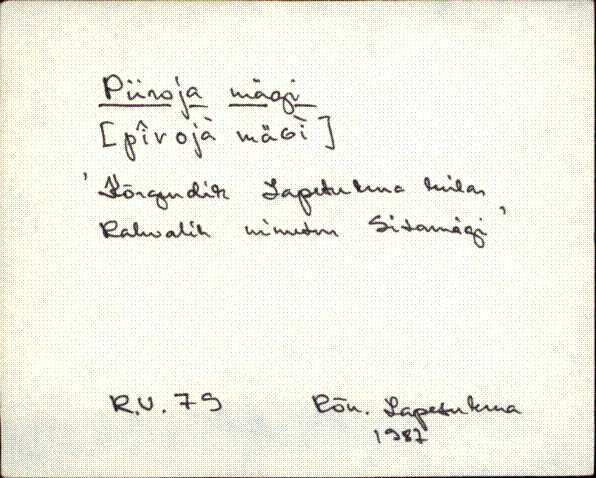 Piiroja mägi
[pîrojà mäGì]
'Kõrgendik Lapetukme külas
Rahvalik nimetus Sitamägi'
R.V. 79
Rõu. Lapetukme
1987